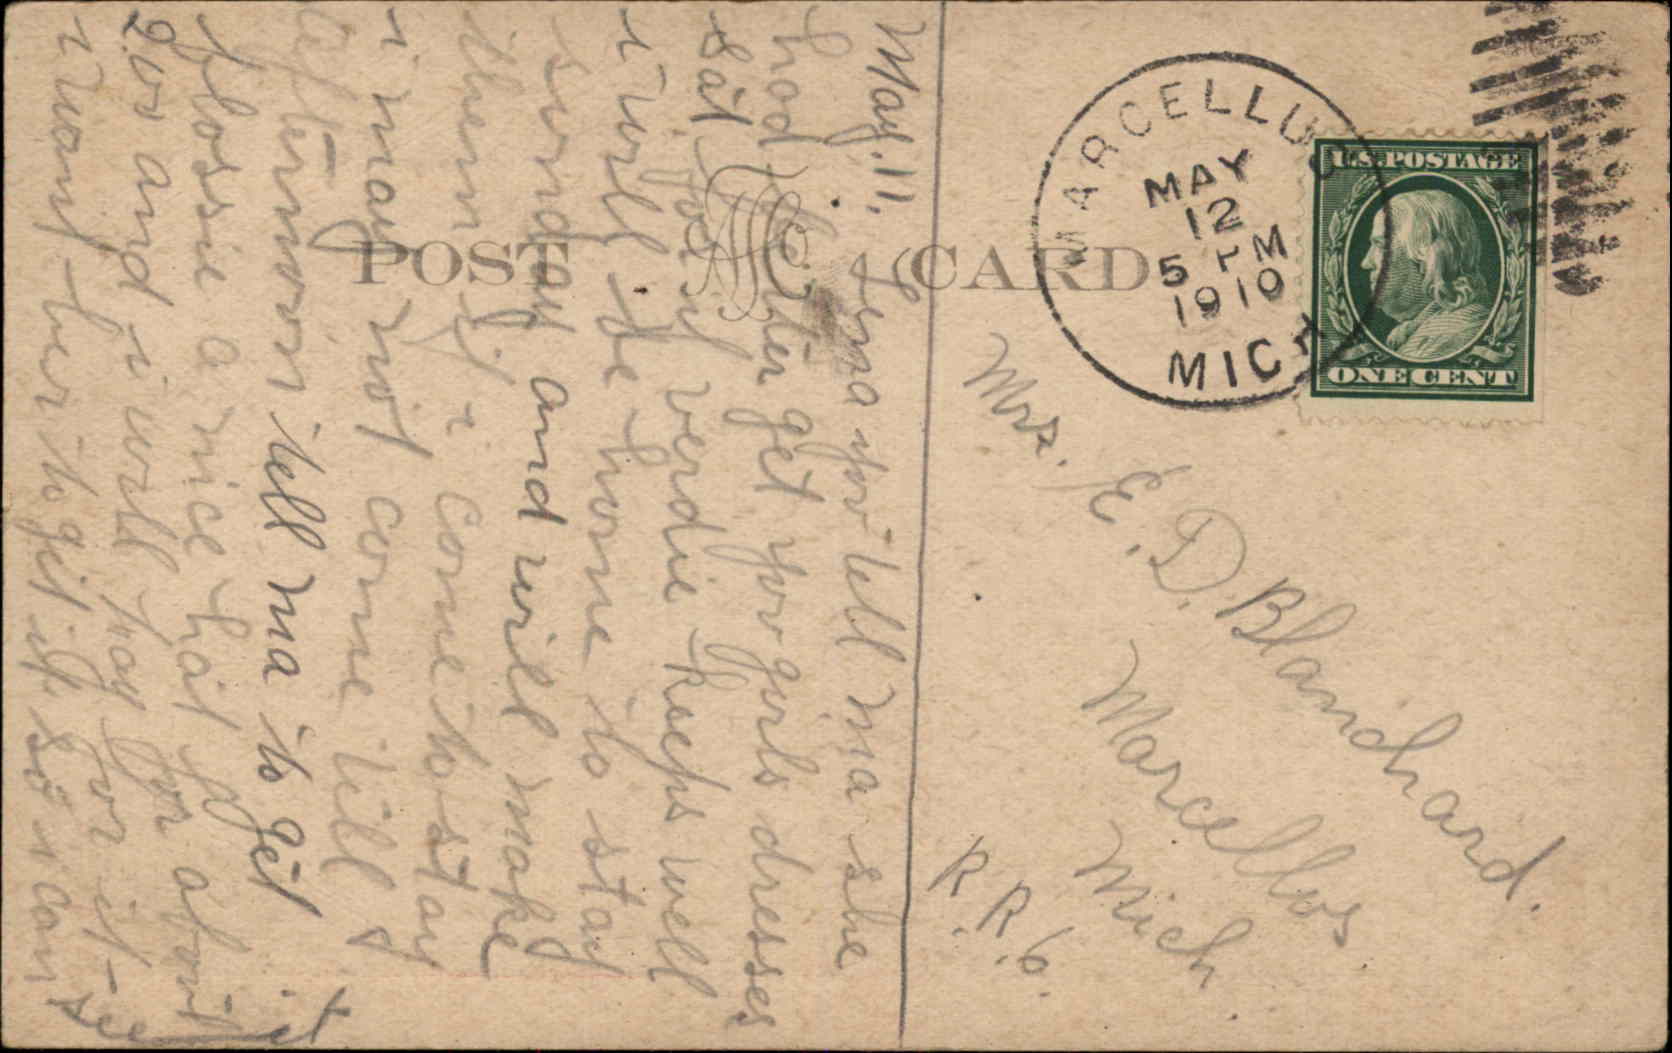 May. 11.
Lena you tell ma she
had better get you girls dresses
sat for if verdie keeps well
i will be home to stay
sunday and will make
them if i come to stay
i may not come till
afternoon tell ma to get
flossie a nice hat for about
2.00 and i will pay for it
i want her to get it so i can
see it
POST CARD
MARCELLUS
MAY
12
5 PM
1910
MICH
U.S. POSTAGE
ONE CENT
Mrs. E. D. Blanchard.
Marcellus
Mich
R. R. 6.